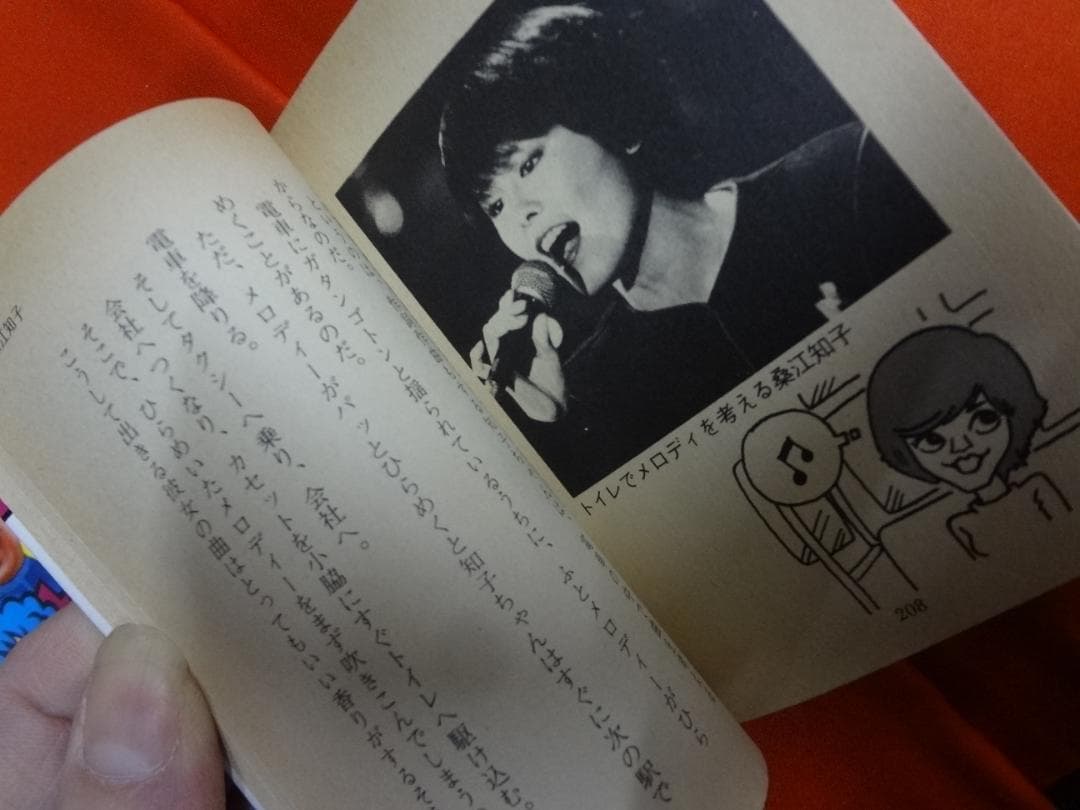 トイレでメロディを考える桑江知子
208
からなのだ。
電車にガタンゴトンと揺られているうちに、ふとメロディーがひら
めくことがあるのだ。
ただ、メロディーがパッとひらめくと知子ちゃんはすぐに次の駅で
電車を降りる。
そしてタクシーへ乗り、会社へ。
会社へつくなり、カセットを小脇にすぐトイレへ駆け込む。
そこで、ひらめいたメロディーをまず吹きこんでしまう
こうして出きる彼女の曲はとってもいい香りがするそ
江知子